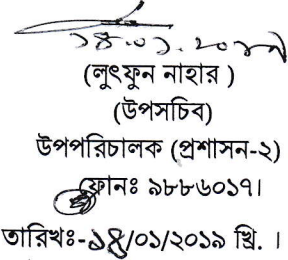 ১৪.০১.২০১৯
(লুৎফুন নাহার )
(উপসচিব)
উপপরিচালক (প্রশাসন-২)
ফোনঃ ৯৮৮৬০১৭।
তারিখঃ-১৪/০১/২০১৯ খ্রি. ।